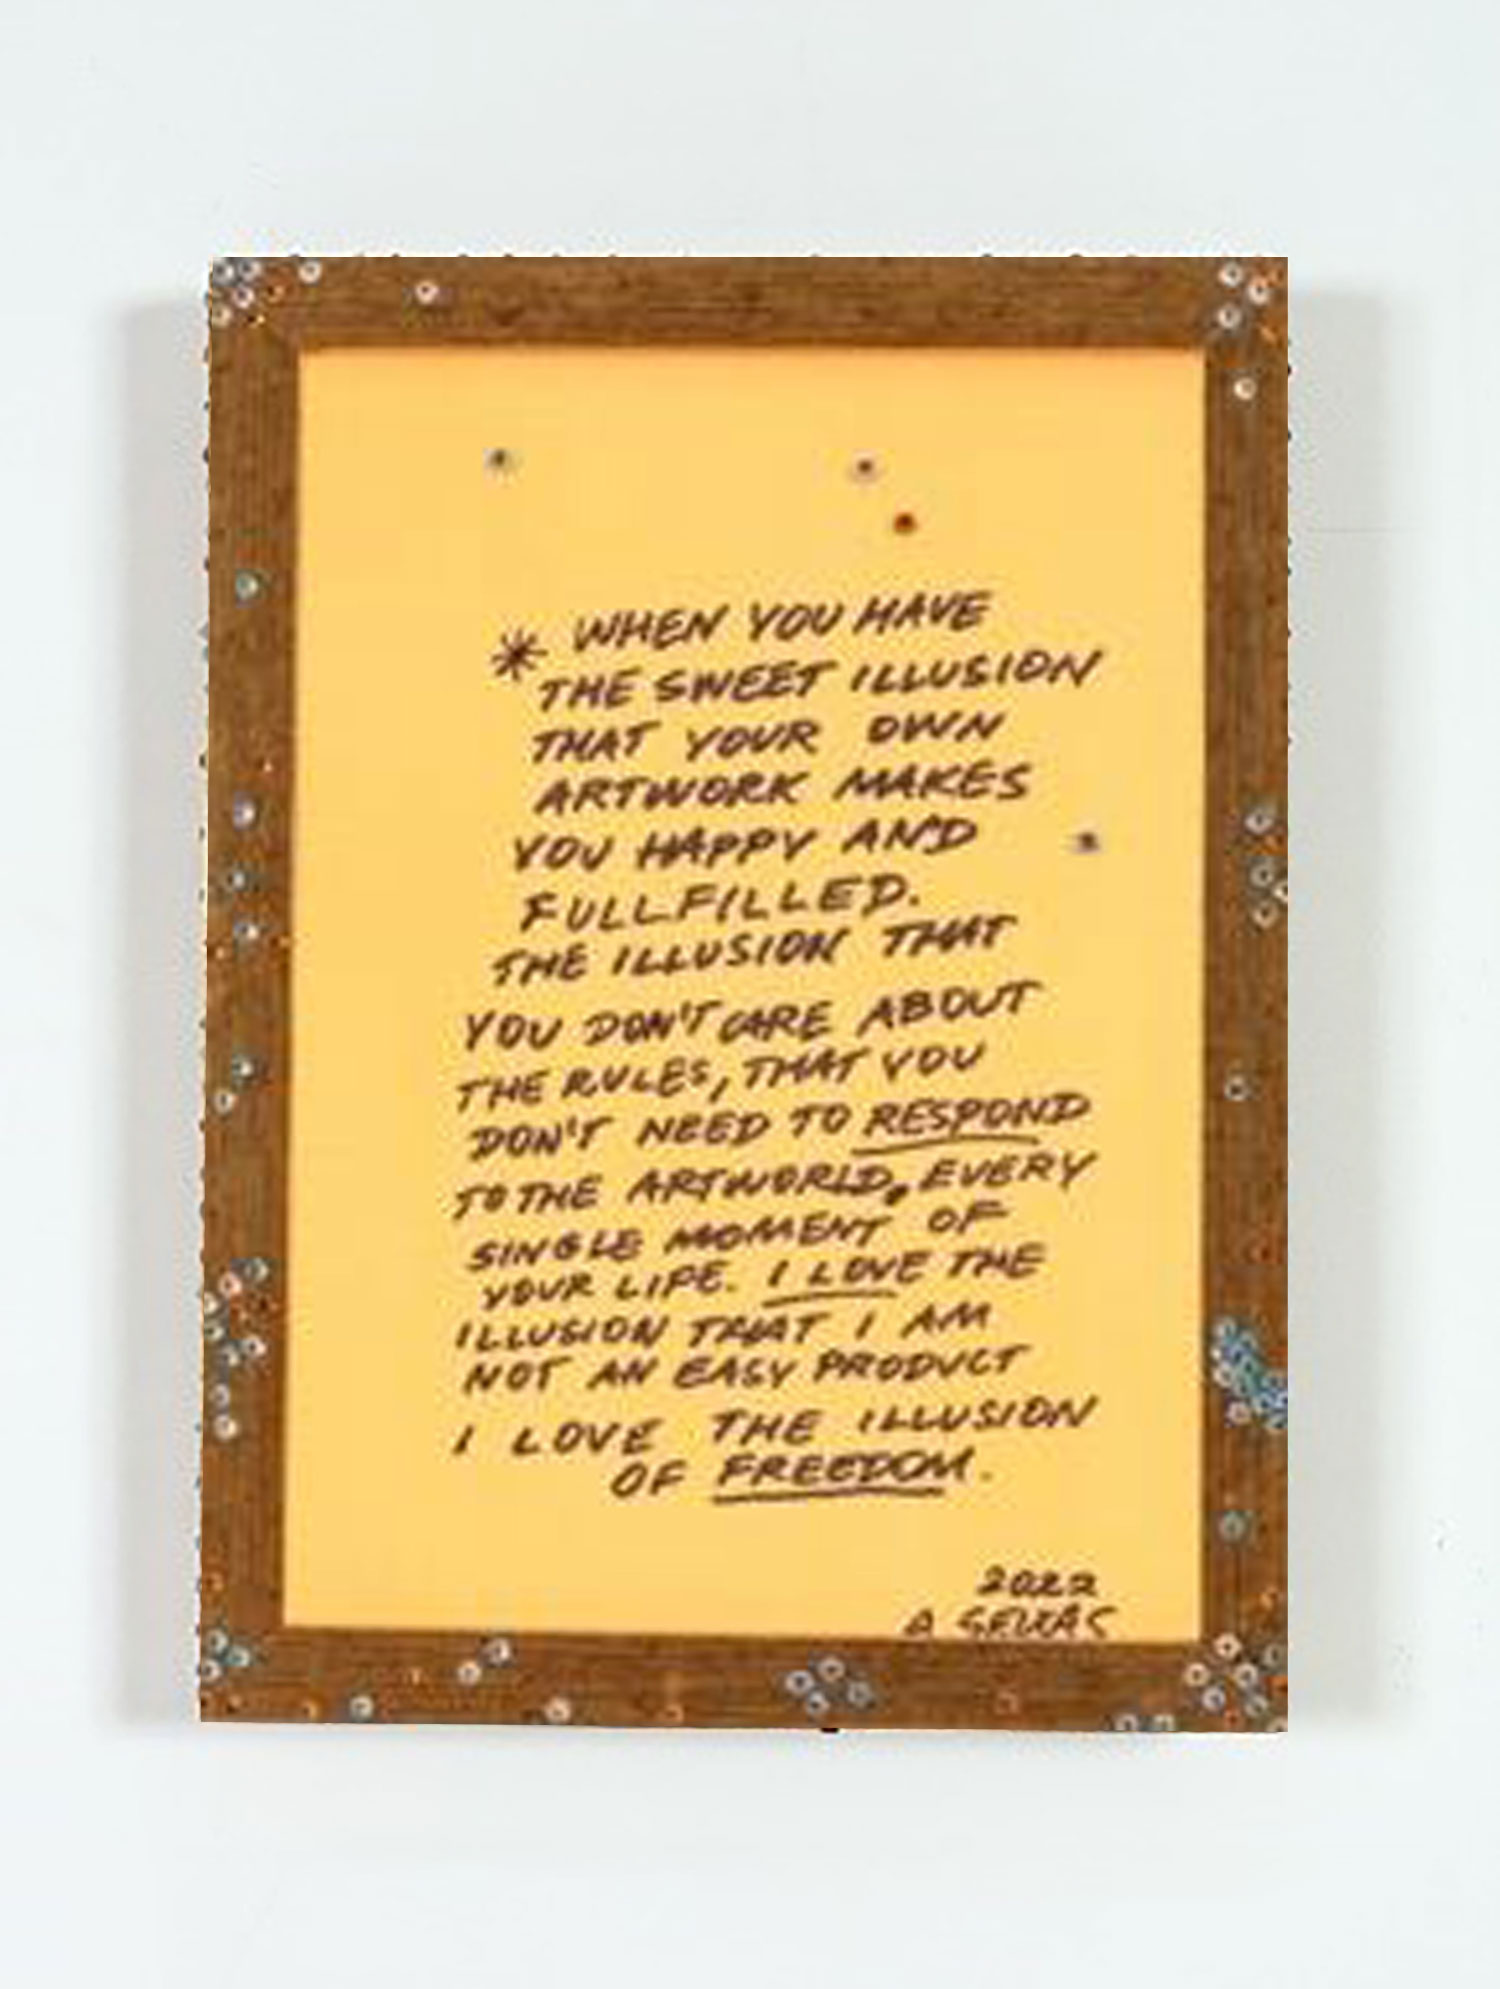 * WHEN YOU HAVE
THE SWEET ILLUSION
THAT YOUR OWN
ARTWORK MAKES
YOU HAPPY AND
FULLFILLED.
THE ILLUSION THAT
YOU DON'T CARE ABOUT
THE RULES, THAT YOU
DON'T NEED TO RESPOND
TO THE ARTWORLD, EVERY
SINGLE MOMENT OF
YOUR LIFE. I LOVE THE
ILLUSION THAT I AM
NOT AN EASY PRODUCT
I LOVE THE ILLUSION
OF FREEDOM.
2022